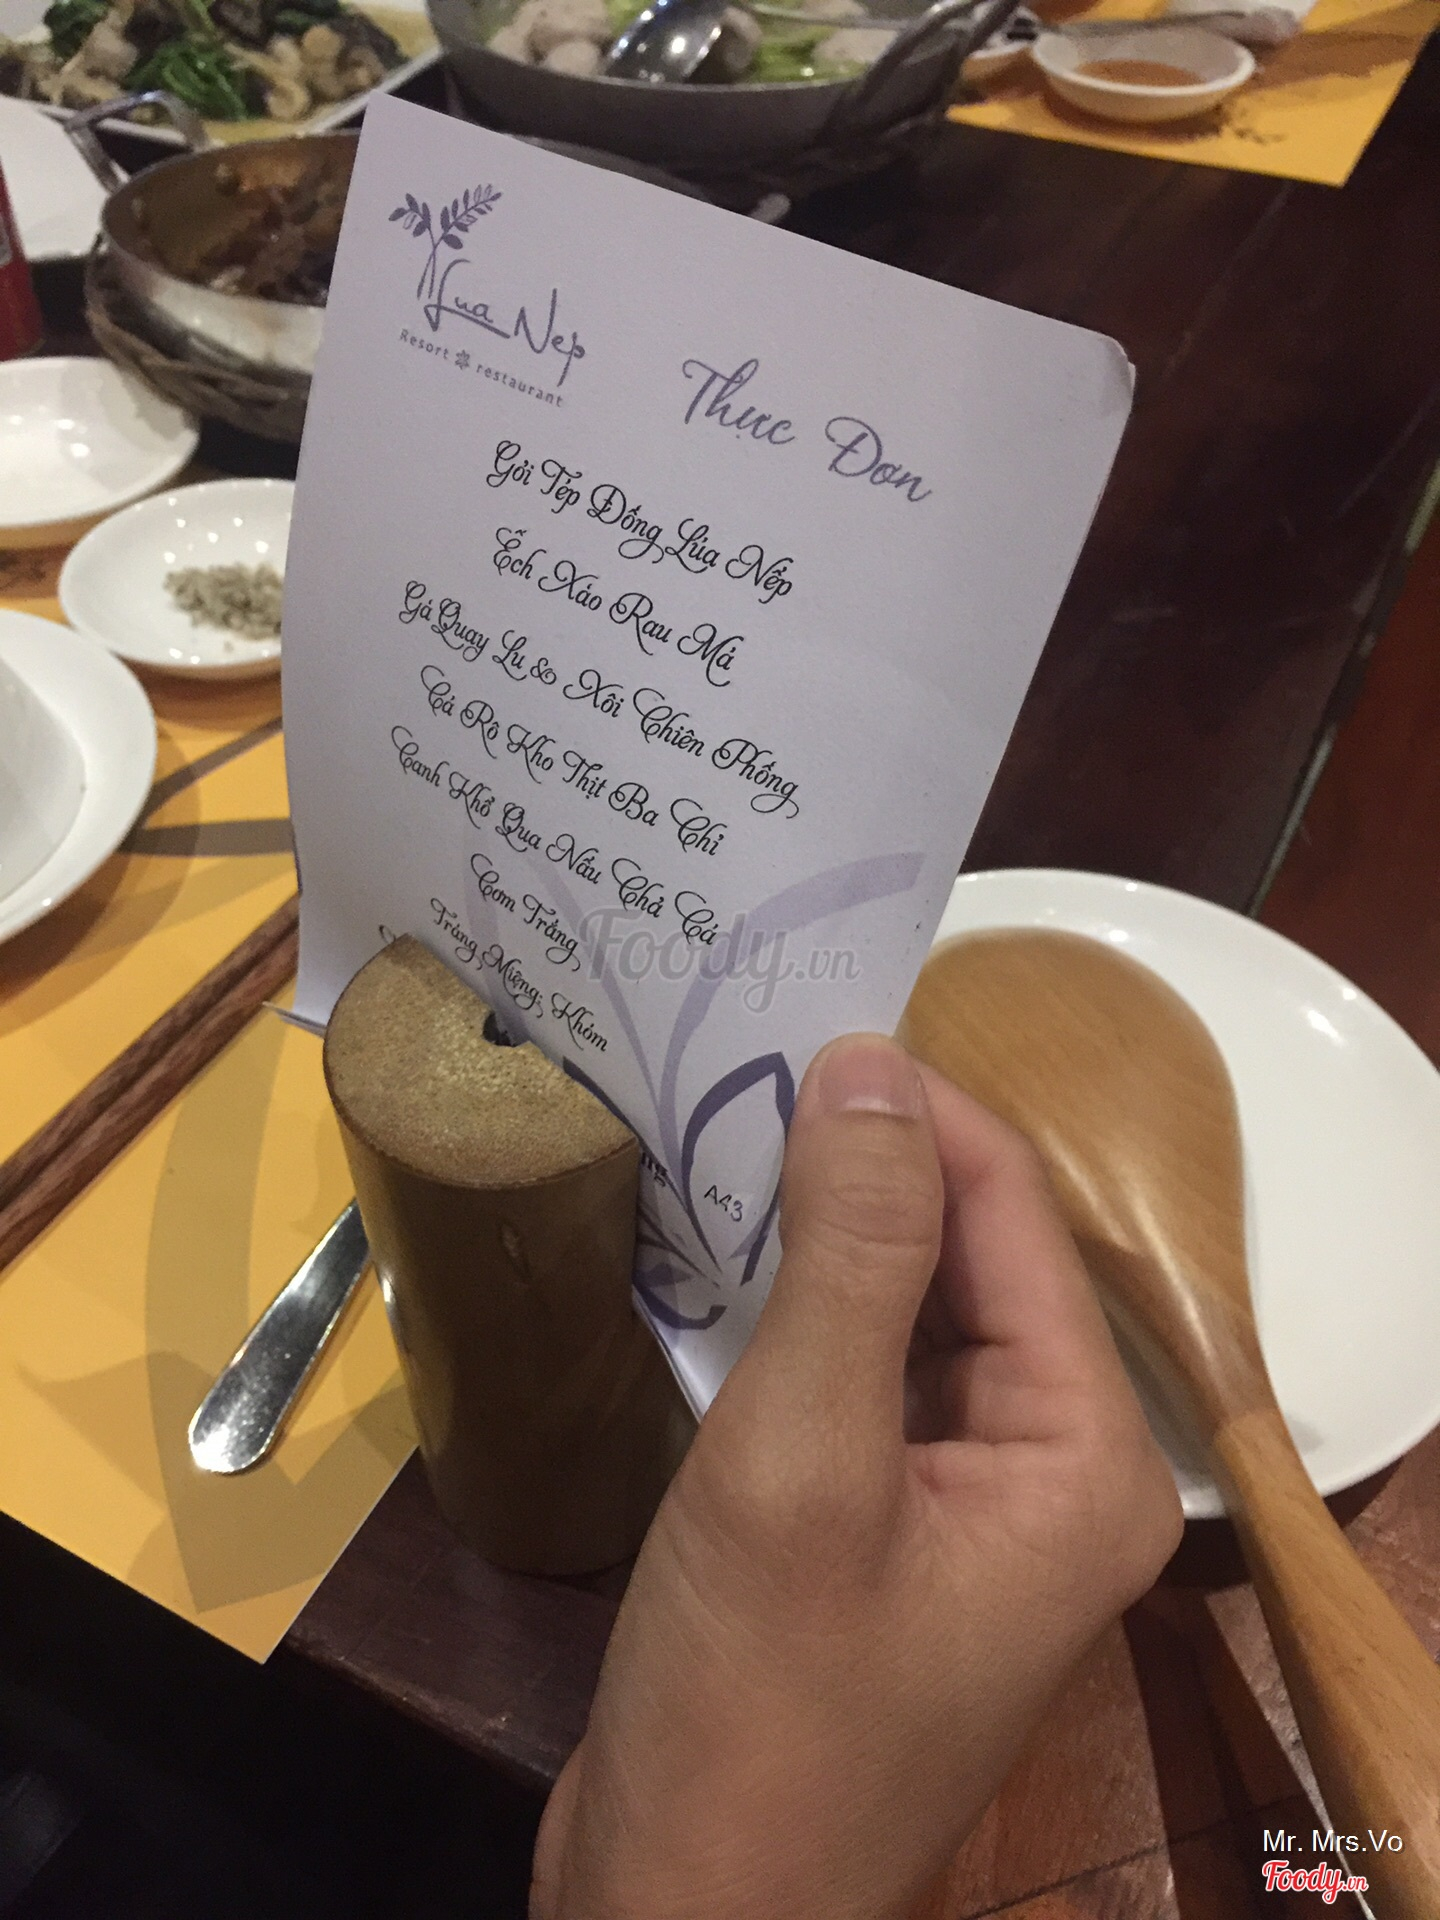 Lua Nep
Resort restaurant
Thực Đơn
Gỏi Tép Đồng Lúa Nếp
Ếch Xáo Rau Má
Gà Quay Lu & Xôi Chiên Phồng
Cá Rô Kho Thịt Ba Chỉ
Canh Khổ Qua Nấu Chả Cá
Cơm Trắng
Tráng Miệng: Khóm
A43
Foody.vn
Mr. Mrs.Vo
Foody.vn